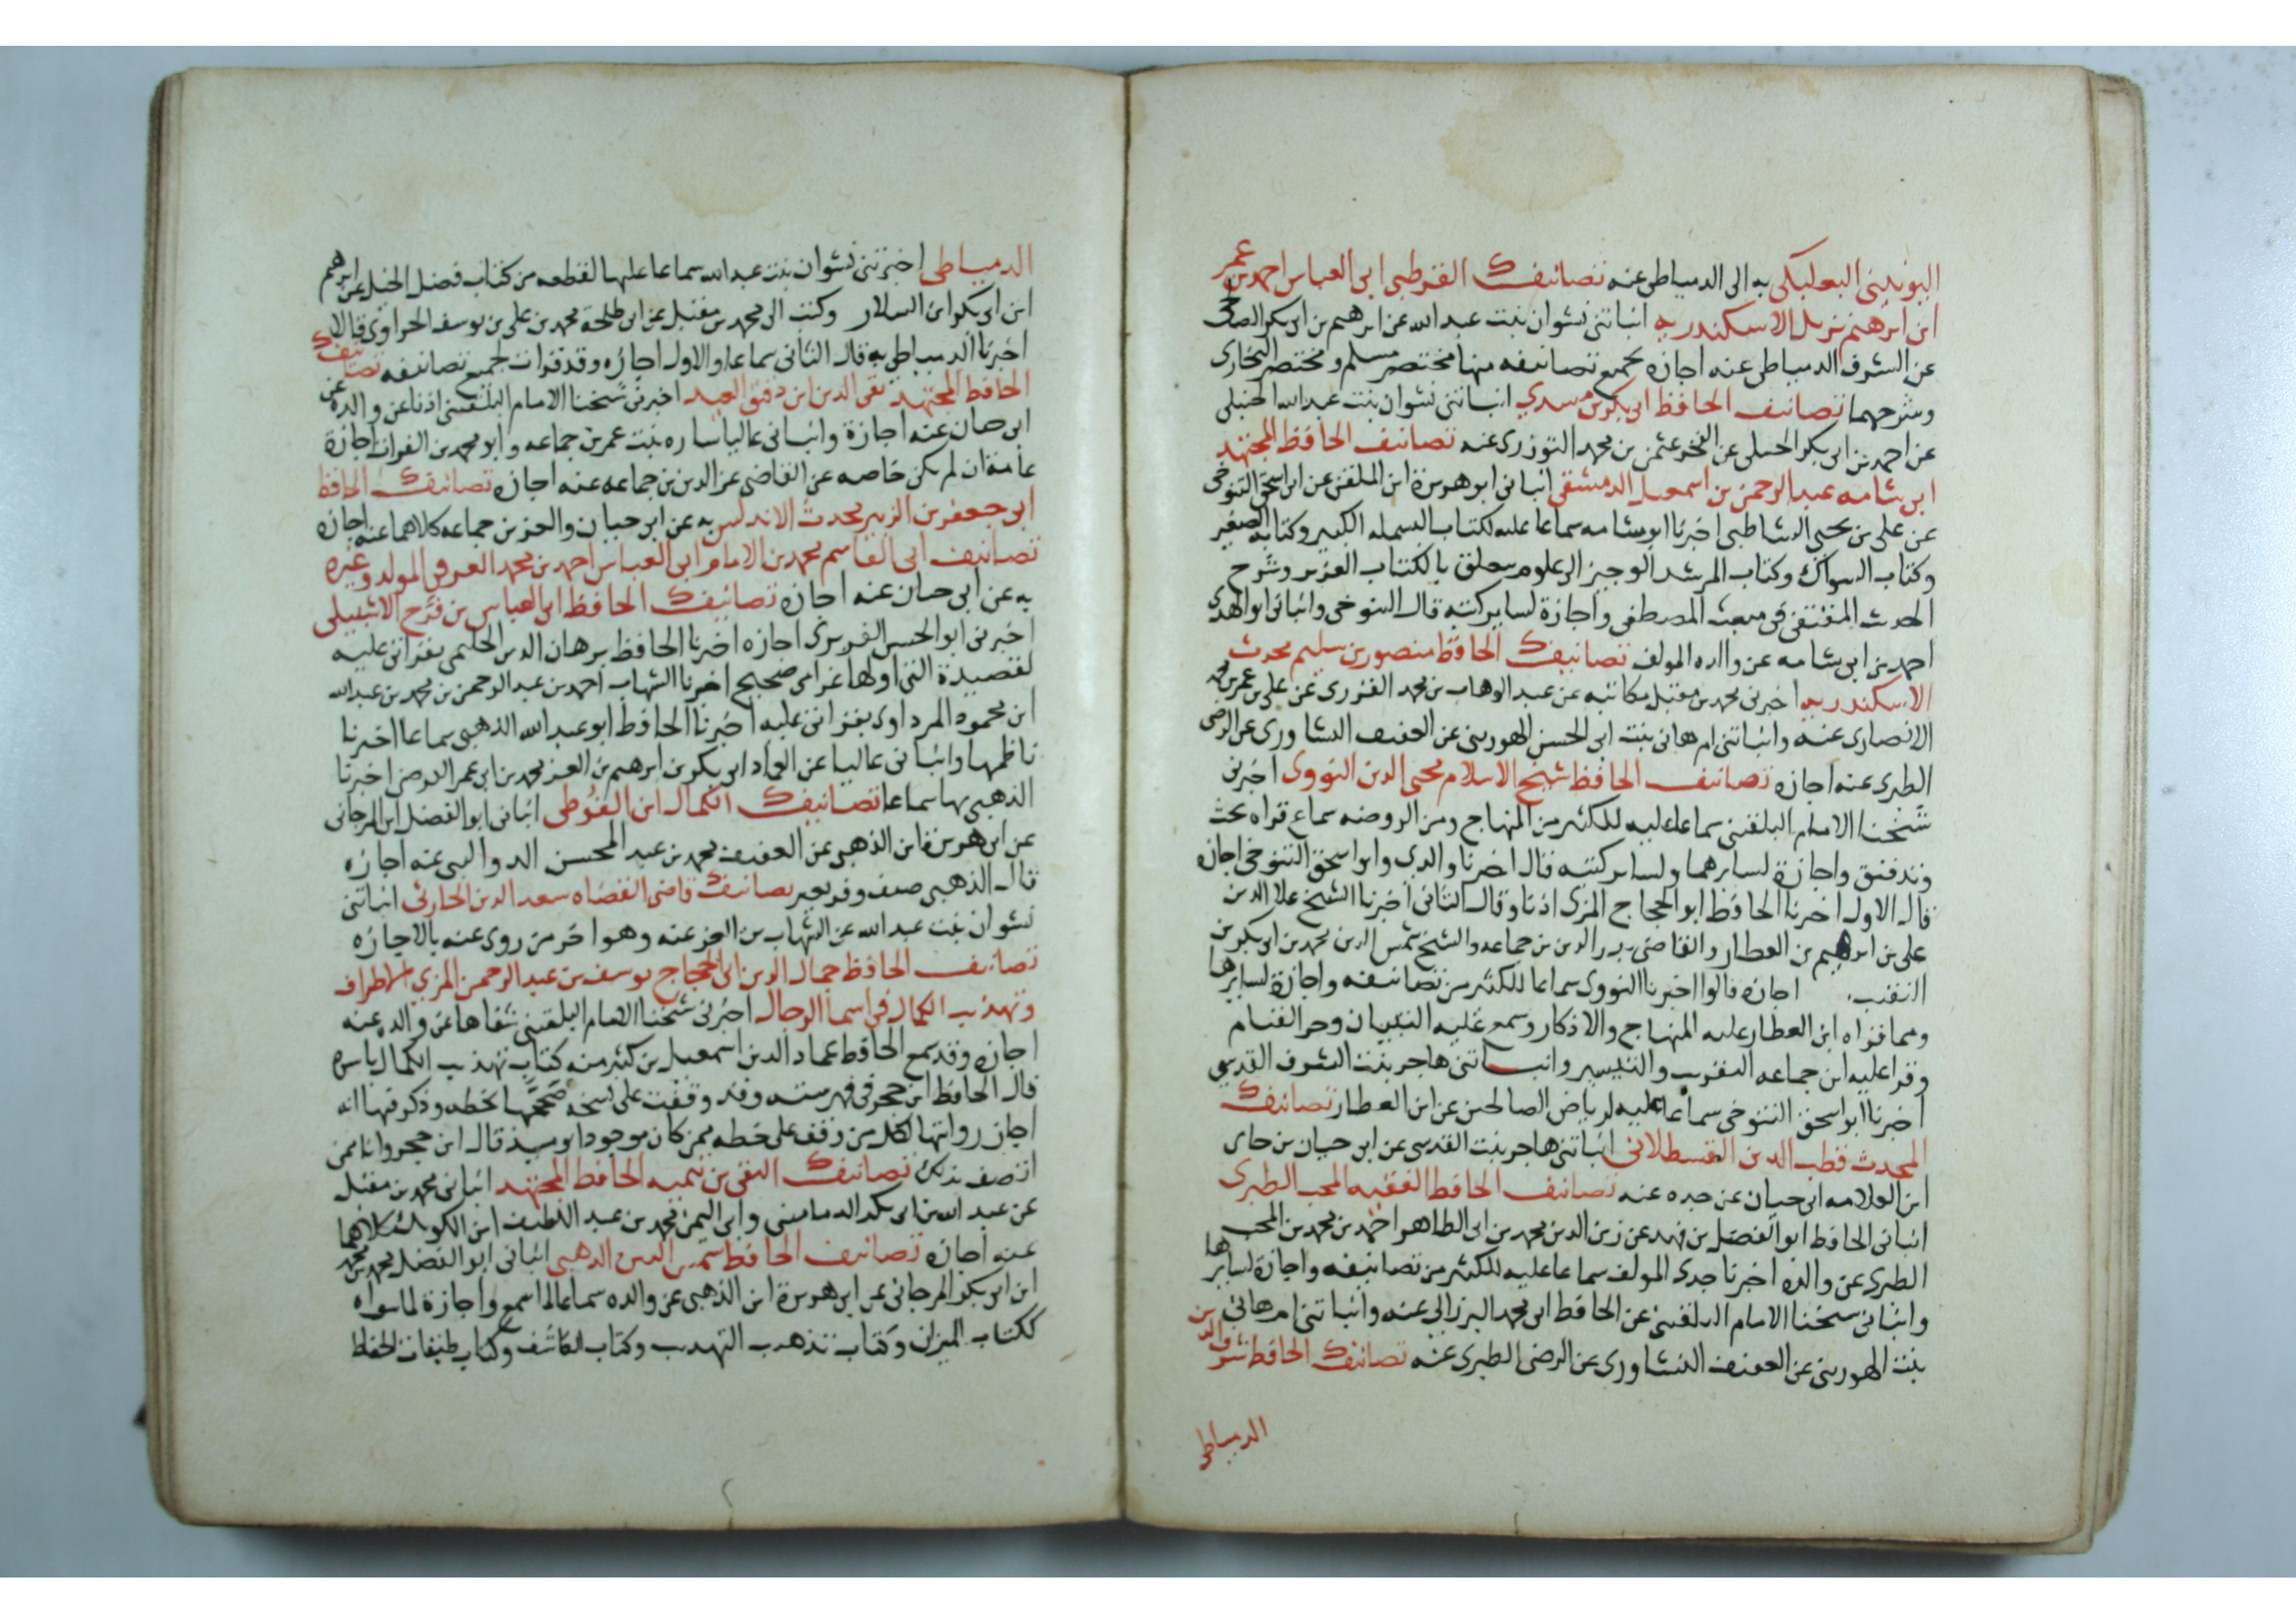 اليونيني البعلبكي به الى الدمياطي عنه تصانيف القرطبي ابى العباس احمد بن عمر
ابن ابرهيم نزيل الاسكندريه انباتني نشوان بنت عبد الله عن ابرهيم بن ابى بكر
عن الشرف الدمياطي عنه اجازه بجميع تصانيفه منها مختصر مسلم ومختصر البخارى
وشرحهما تصانيف الحافظ ابى بكر بن مسدي انباتنى نشوان بنت عبد الله الحنبلى
عن احمد بن ابى بكر الحنبلى عن الفخر عثمن بن محمد التوزرى عنه تصانيف الحافظ المجتهد
ابى شامه عبد الرحمن بن اسمعيل الدمشقى انبانى ابو هريرة ابن الملقن عن ابى اسحق التنوخى
عن على بن يحيى الشاطبى اخبرنا ابو شامه سماعا عليه لكتاب البسمله الكبير وكتابه الصغير
وكتاب السواك وكتاب المرشد الوجيز الى علوم تتعلق بالكتاب العزيز وشرح
الحديث المقتفى فى مبعث المصطفى واجازة لساير كتبه قال التنوخى وانبانى ابو الهدى
احمد بن ابى شامه عن والده المولف تصانيف الحافظ منصور بن سليم محدث
الاسكندريه اخبرنى محمد بن مقبل مكاتبه عن عبد الوهاب بن محمد القروى عن على بن عمر بن محمد
الانصارى عنه وانباتنى ام هانى بنت ابى الحسن الهورينى عن العفيف النشاورى عن الرضى
الطبرى عنه اجازه تصانيف الحافظ شيخ الاسلام محيى الدين النووى اخبرنى
شيخنا الامام البلقينى سماعا عليه للكثير من المنهاج ومن الروضه سماع قراه بحث
وتدقيق واجازة لسايرهما ولساير كتبه قال اخبرنا والدى وابو اسحق التنوخى اجازه
قال الاول اخبرنا الحافظ ابو الحجاج المزى اذنا وقال الثانى اخبرنا الشيخ علا الدين
على بن ابرهيم بن العطار والقاضى بدر الدين بن جماعه والشيخ شمس الدين محمد بن ابى بكر بن
النقيب اجازه قالوا اخبرنا النووى سماعا للكثير من تصانيفه واجازة لسايرها
ومما قراه ابن العطار عليه المنهاج والاذكار وسمع عليه التبيان وجزء القيام
وقرا عليه ابن جماعه التقريب والتيسير وانباتنى هاجر بنت الشرف القدسي
اخبرنا ابو اسحق التنوخى سماعا عليه لرياض الصالحين عن ابن العطار تصانيف
المحدث قطب الدين القسطلانى انباتنى هاجر بنت القدسى عن ابى حيان بن حيان
ابن العلامه ابى حيان عن جده عنه تصانيف الحافظ الفقيه المحب الطبرى
انبانى الحافظ ابو الفضل بن فهد عن زين الدين محمد بن ابى الطاهر احمد بن محمد بن المحب
الطبرى عن والده اخبرنا جدى المولف سماعا عليه للكثير من تصانيفه واجازة لسايرها
وانبانى شيخنا الامام البلقينى عن الحافظ ابى محمد البرزالى عنه وانباتنى ام هانى
بنت الهورينى عن العفيف النشاورى عن الرضى الطبرى عنه تصانيف الحافظ شرف الدين
الدمياطى
الدمياطى اخبرتنى نشوان بنت عبد الله سماعا عليها لقطعه من كتاب فضل الخيل عن ابرهيم
ابن ابى بكر ابن السلار وكتب الى محمد بن مقبل عن ابى طلحة محمد بن على بن يوسف الحراوى قالا
اخبرنا الدمياطى به قال الثانى سماعا والاول اجازه وقد قرات جميع تصانيفه تصانيف
الحافظ المجتهد تقى الدين ابن دقيق العيد اخبرنى شيخنا الامام البلقينى اذنا عن والده عن
ابى حيان عنه اجازة وانبانى عاليا ساره بنت عمر بن جماعه وابو محمد بن الفرات اجازة
عامة ان لم يكن خاصه عن القاضى عز الدين بن جماعه عنه اجازه تصانيف الحافظ
ابى جعفر بن الزبير محدث الاندلس به عن ابى حيان والعز بن جماعه كلاهما عنه اجازه
تصانيف ابى القاسم محمد بن الامام ابى العباس احمد بن محمد العزفى المولد وغيره
به عن ابى حيان عنه اجازه تصانيف الحافظ ابى العباس بن فرح الاشبيلى
اخبرنى ابو الحسن اجازه اخبرنا الحافظ برهان الدين الحلبى بقراتى عليه
لقصيدة التى اولها غرامى صحيح اخبرنا الشهاب احمد بن عبد الرحمن بن محمد بن عبد الله
ابن محمود المرداوى بقراتى عليه اخبرنا الحافظ ابو عبد الله الذهبى سماعا اخبرنا
ناظمها وانبانى عاليا عن العماد ابى بكر بن ابرهيم بن العز محمد بن ابى عمر اخبرنا
الذهبى بها سماعا تصانيف الكمال ابن الفوطى انبانى ابو الفضل ابن المرجانى
عن ابى هريرة ابن الذهبى عن العفيف محمد بن عبد المحسن الدواليبى عنه اجازه
قال الذهبى صنف وقر بعير تصانيف قاضى القضاه سعد الدين الحارثى انباتنى
نشوان بنت عبد الله عن الشهاب بن العز عنه وهو اخر من روى عنه بالاجازه
تصانيف الحافظ جمال الدين ابى الحجاج يوسف بن عبد الرحمن المزى الاطراف
وتهذيب الكمال فى اسما الرجال اخبرنى شيخنا الامام البلقينى شفاها عن والده عنه
اجازه وقد سمع الحافظ عماد الدين اسمعيل بن كثير منه كتاب تهذيب الكمال باسره
قال الحافظ ابن حجر فى فهرسته وقد وقفت على نسخه صححها بخطه وذكر فيها انه
اجاز روايتها لكل من وقف على خطه ممن كان موجودا يوميذ قال ابن حجر وانا ممن
اتصف بذلك تصانيف التقى بن تيميه الحافظ المجتهد انبانى محمد بن مقبل
عن عبد الله بن ابى بكر الدمامينى وابى اليمن محمد بن عبد اللطيف ابن الكويك كلاهما
عنه اجازه تصانيف الحافظ شمس الدين الذهبى انبانى ابو الفضل محمد بن محمد
ابن ابى بكر المرجانى عن ابى هريرة ابن الذهبى عن والده سماعا لما سمع واجازة لما سواه
ككتاب الميزان وكتاب تذهيب التهذيب وكتاب الكاشف وكتاب طبقات الحفاظ